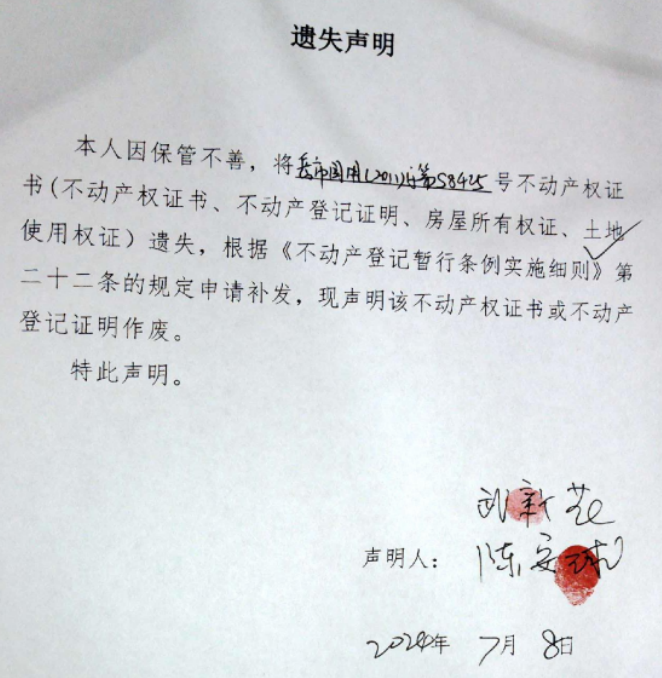 遗失声明
本人因保管不善，将岳市国用(2011)第58425号不动产权证
书(不动产权证书、不动产登记证明、房屋所有权证、土地
使用权证）遗失，根据《不动产登记暂行条例实施细则》第
二十二条的规定申请补发，现声明该不动产权证书或不动产
登记证明作废。
特此声明。
新花
声明人：陈安球
2024年 7月 8日